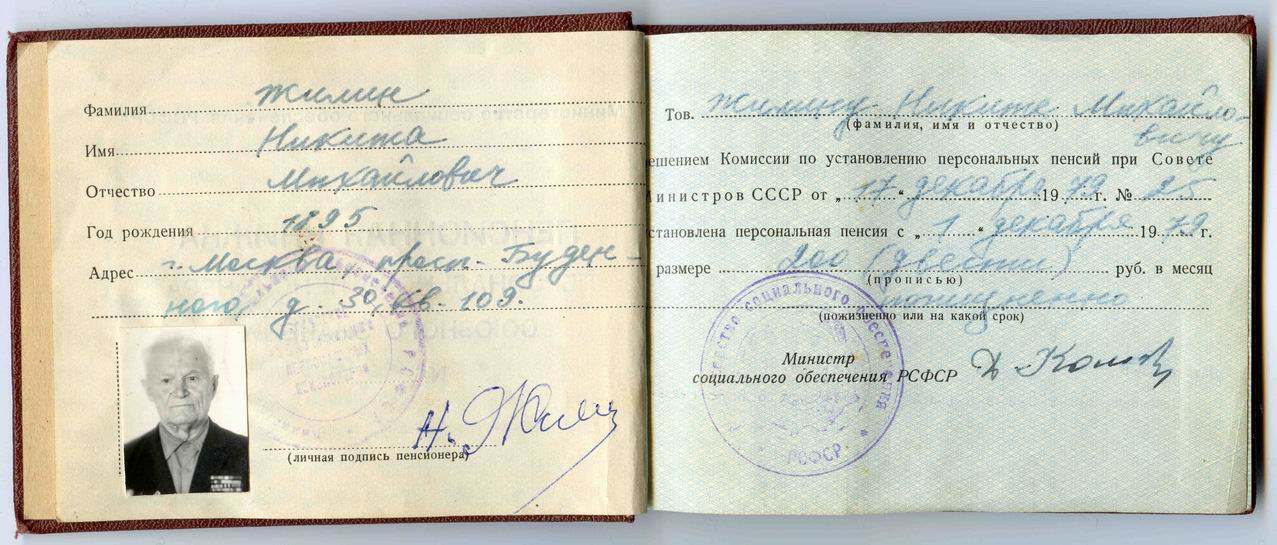 Фамилия Жилин
Имя Никита
Отчество Михайлович
Год рождения 1895
Адрес г. Москва, просп. Буден-
ного, д. 30, кв. 109.
Н. Жилин
(личная подпись пенсионера)
Тов. Жилину Никите Михайло-
вичу
(фамилия, имя и отчество)
ешением Комиссии по установлению персональных пенсий при Совете
Министров СССР от „ 17 “ декабря 1979 г. № 25
становлена персональная пенсия с „ 1 “ декабря 1979 г.
размере 200 (двести) руб. в месяц
(прописью)
пожизненно
(пожизненно или на какой срок)
Министр
социального обеспечения РСФСР
социального обеспечения
РСФСР